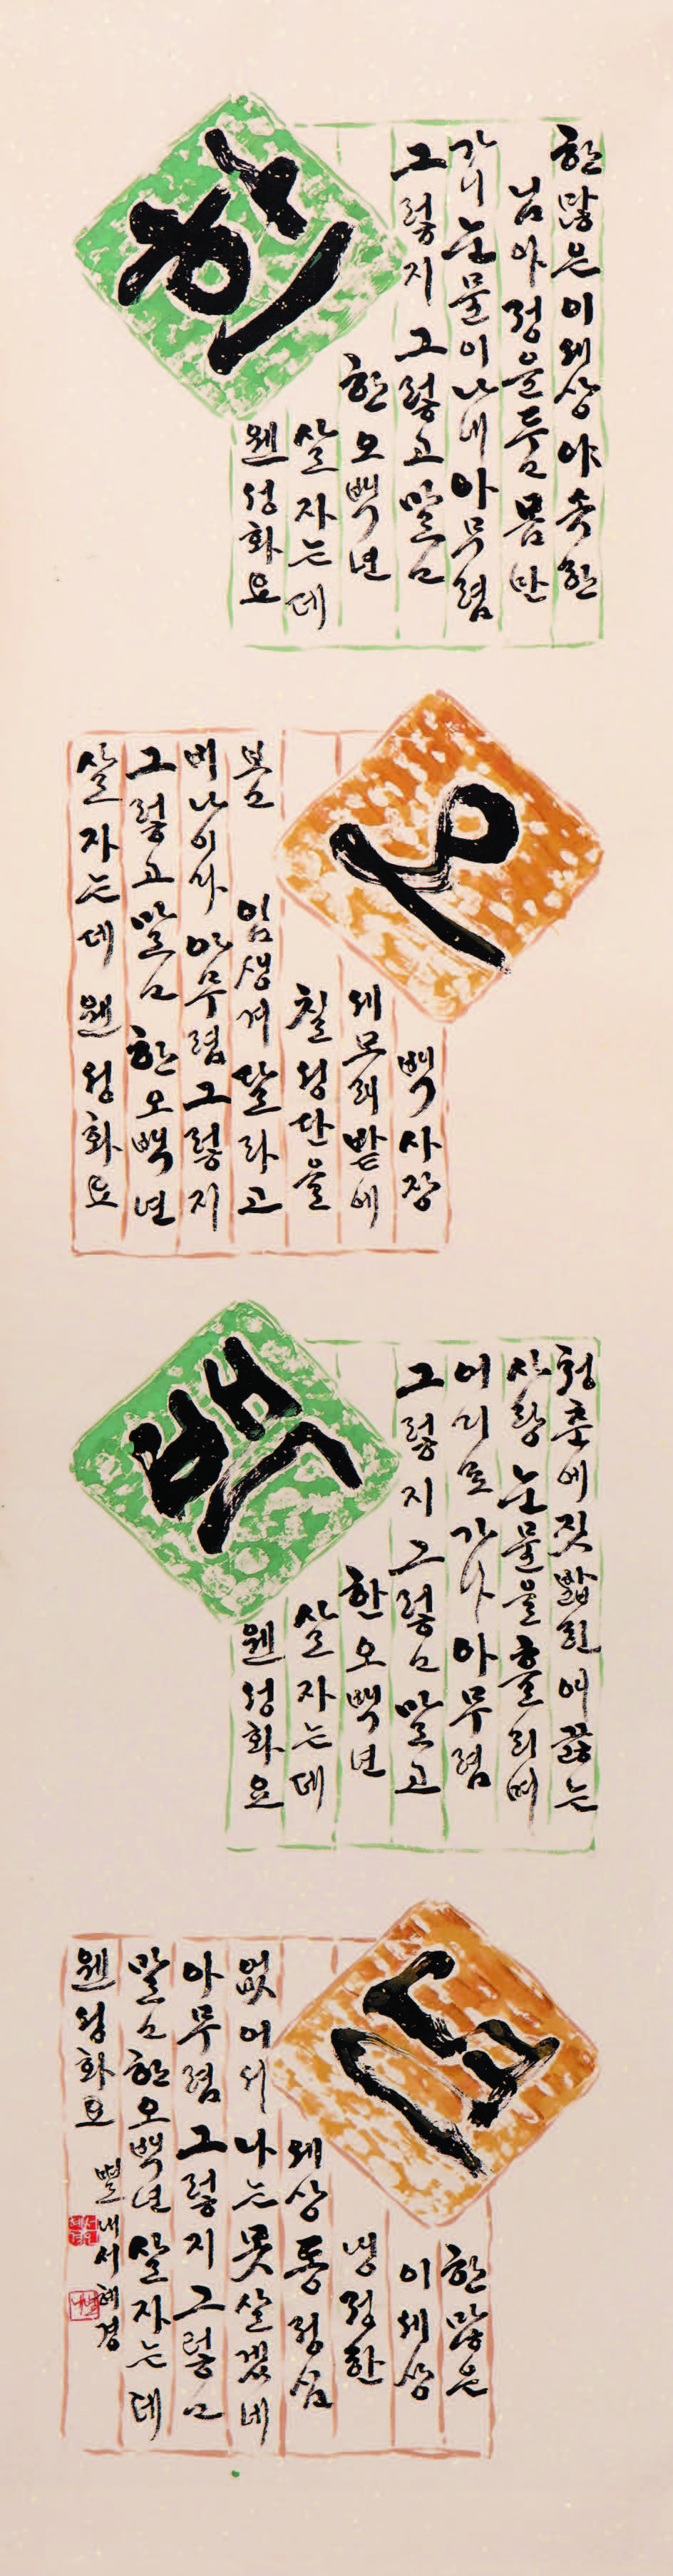 한
한많은이세상야속한
님아정을 몸만
가니눈물이나네아무렴
그렇지그렇고말고
한오백년
살자는데
웬성화요
오
백사장
세모래밭에
칠성단을
임생겨달라고
비나이다아무렴그렇지
그렇고말고한오백년
살자는데웬성화요
백
청춘에짓밟힌애끓는
사랑눈물을흘리며
어디로가나아무렴
그렇지그렇고말고
한오백년
살자는데
웬성화요
년
한많은
이세상
냉정한
세상동정심
없어서나는못살겠네
아무렴그렇지그렇고
말고한오백년살자는데
웬성화요
서혜경